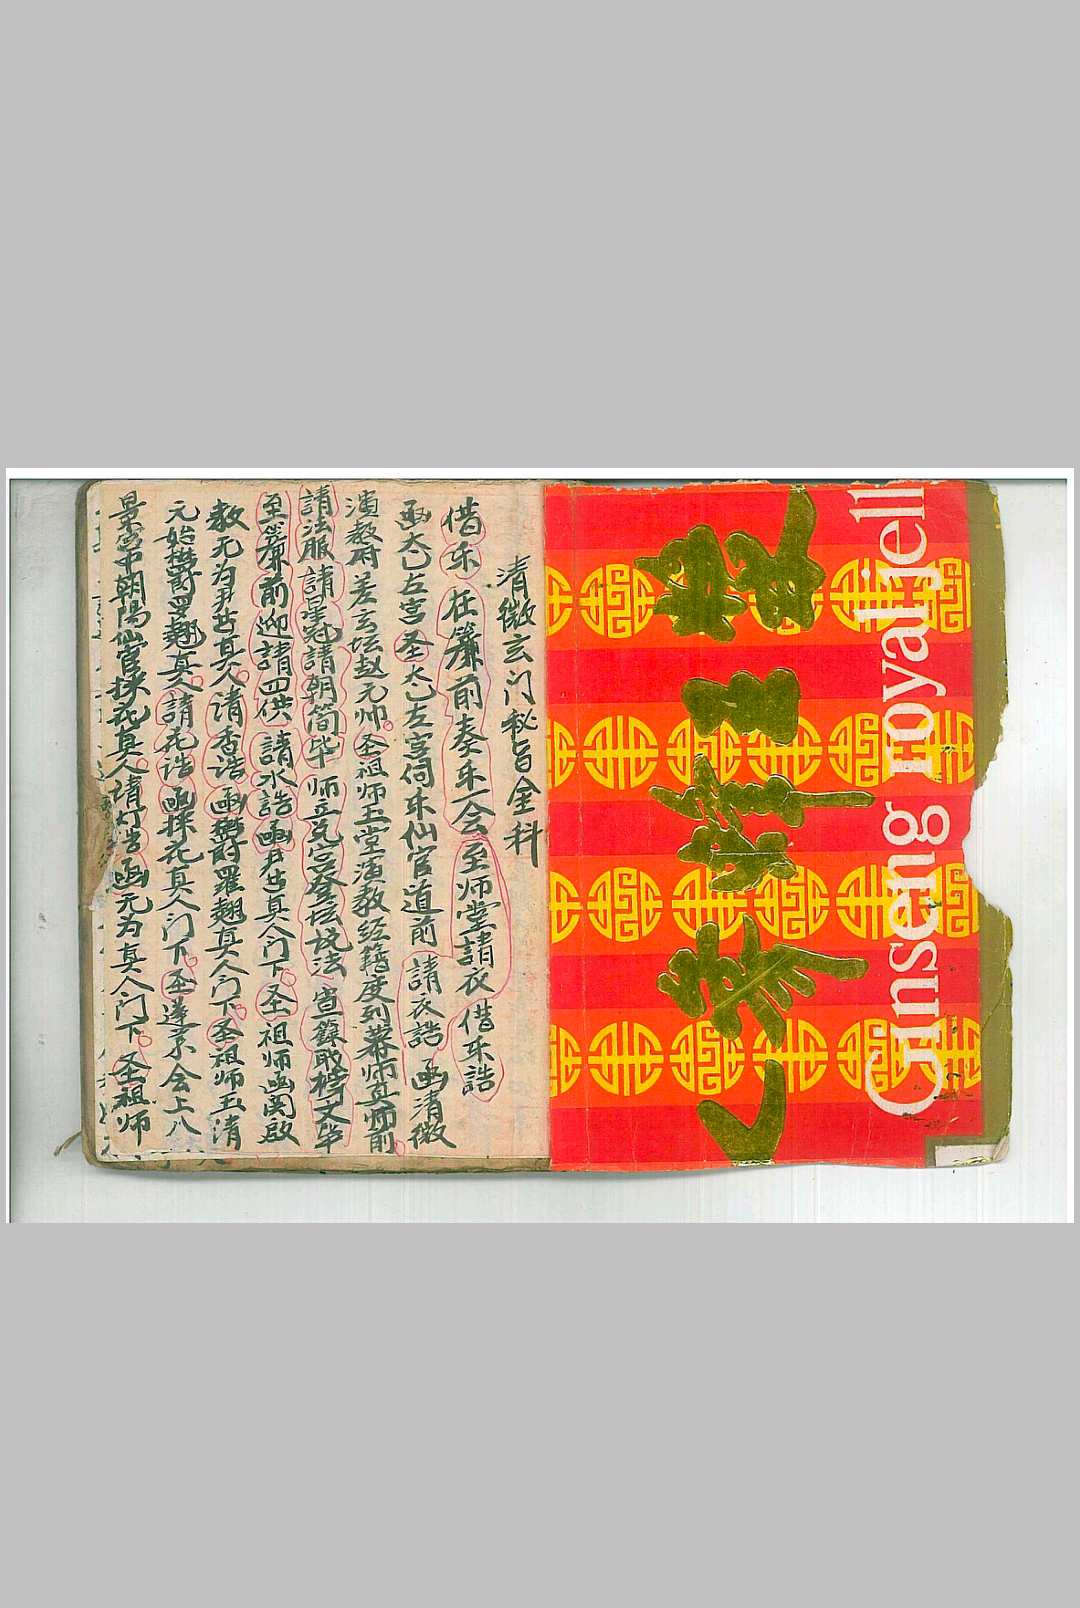 Ginseng royal jell
清微玄门秘旨全科
借乐 在簾前奏乐一会 至师堂請衣 借乐誥
函太乙左宫 圣太乙左宫伺乐仙官道前 請衣誥 函清微
演教府差玄坛赵元帅 圣祖师玉堂演教经籍度列幕师真师前
請法服 請星冠 請朝简毕 师立 登坛说法 宣籙戒 文毕
至簾前迎請四供 請水誥 函尹喜真人门下 圣祖师函関啟
教无为尹喜真人 请香诰 函欎罗翘真人门下 圣祖师玉清
元始欎罗翘真人 請花诰 函採花真人门下 圣 会上八
景宫中朝陽仙官採花真人 请灯誥 函无为真人门下 圣祖师